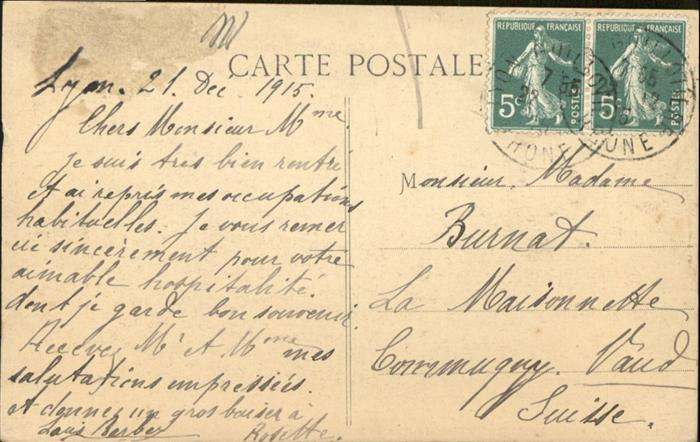 CARTE POSTALE
Lyon. 21. Déc 1915.
Chers Monsieur Mme.
Je suis très bien rentré
et ai repris mes occupations
habituelles. Je vous remer
cie sincèrement pour votre
aimable hospitalité
dont je garde bon souvenir.
Recevez Mr et Mme mes
salutations empressées.
et donnez un gros baiser à
Louis Berber Rosette.
REPUBLIQUE FRANÇAISE
5c POSTES
REPUBLIQUE FRANÇAISE
5c POSTES
RHONE
RHONE
Monsieur. Madame
Burnat.
La Maisonnette
Commugny. Vaud
Suisse.